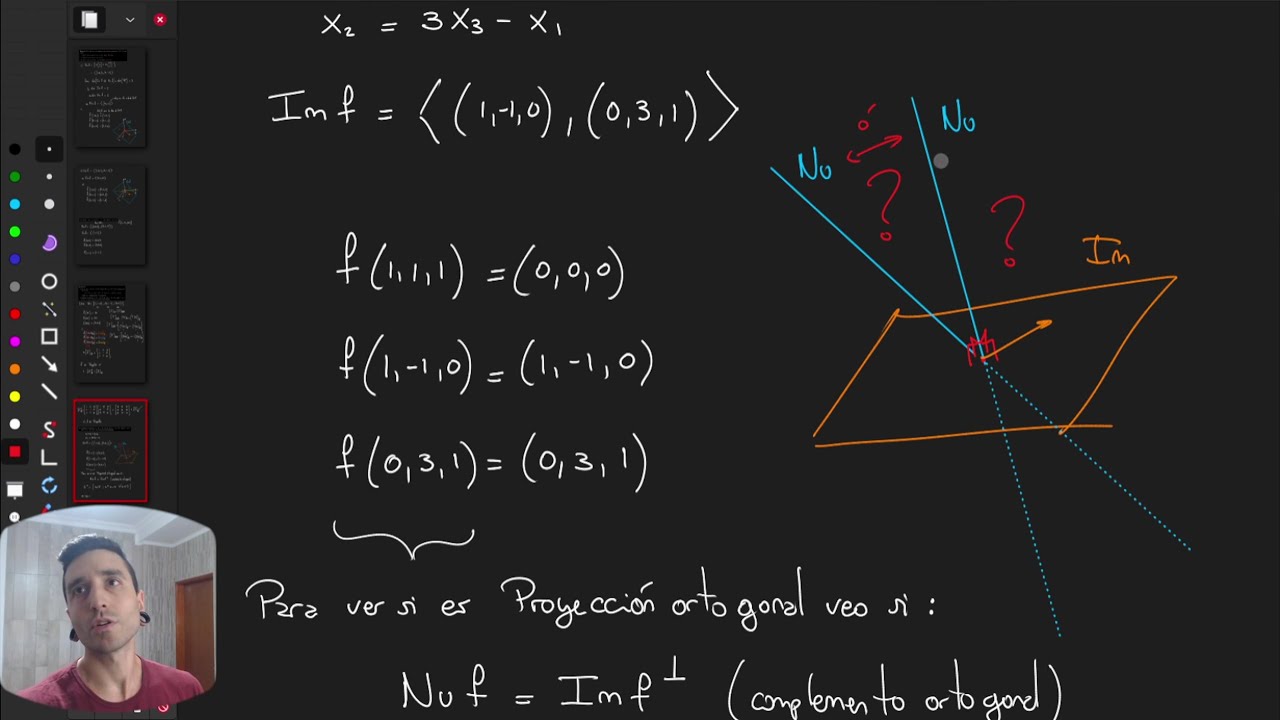 x₂ = 3x₃ - x₁
Im f = ⟨(1,-1,0), (0,3,1)⟩
f(1,1,1) = (0,0,0)
f(1,-1,0) = (1,-1,0)
f(0,3,1) = (0,3,1)
Para ver si es Proyección ortogonal veo si:
Nu f = Im f⊥ (complemento ortogonal)
ó
Nu
Nu
?
?
Im